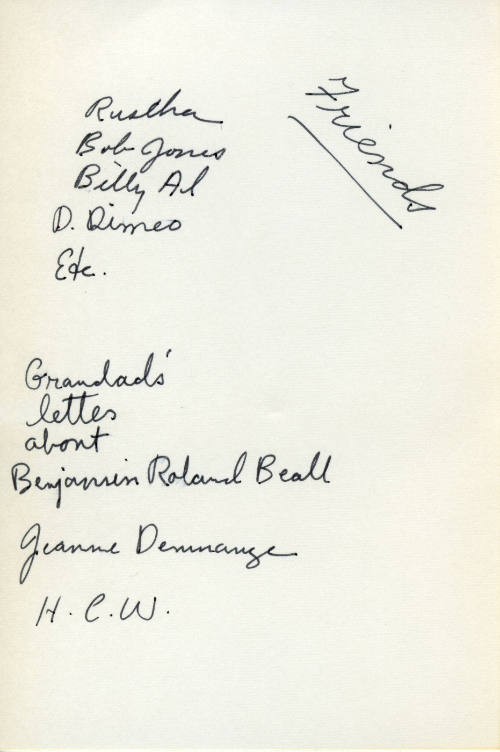 Friends
Rustha
Bob Jones
Billy Al
D. Dimeo
Etc.
Grandads'
lettes
about
Benjamin Roland Beall
Jeanne Demnange
H. C. W.